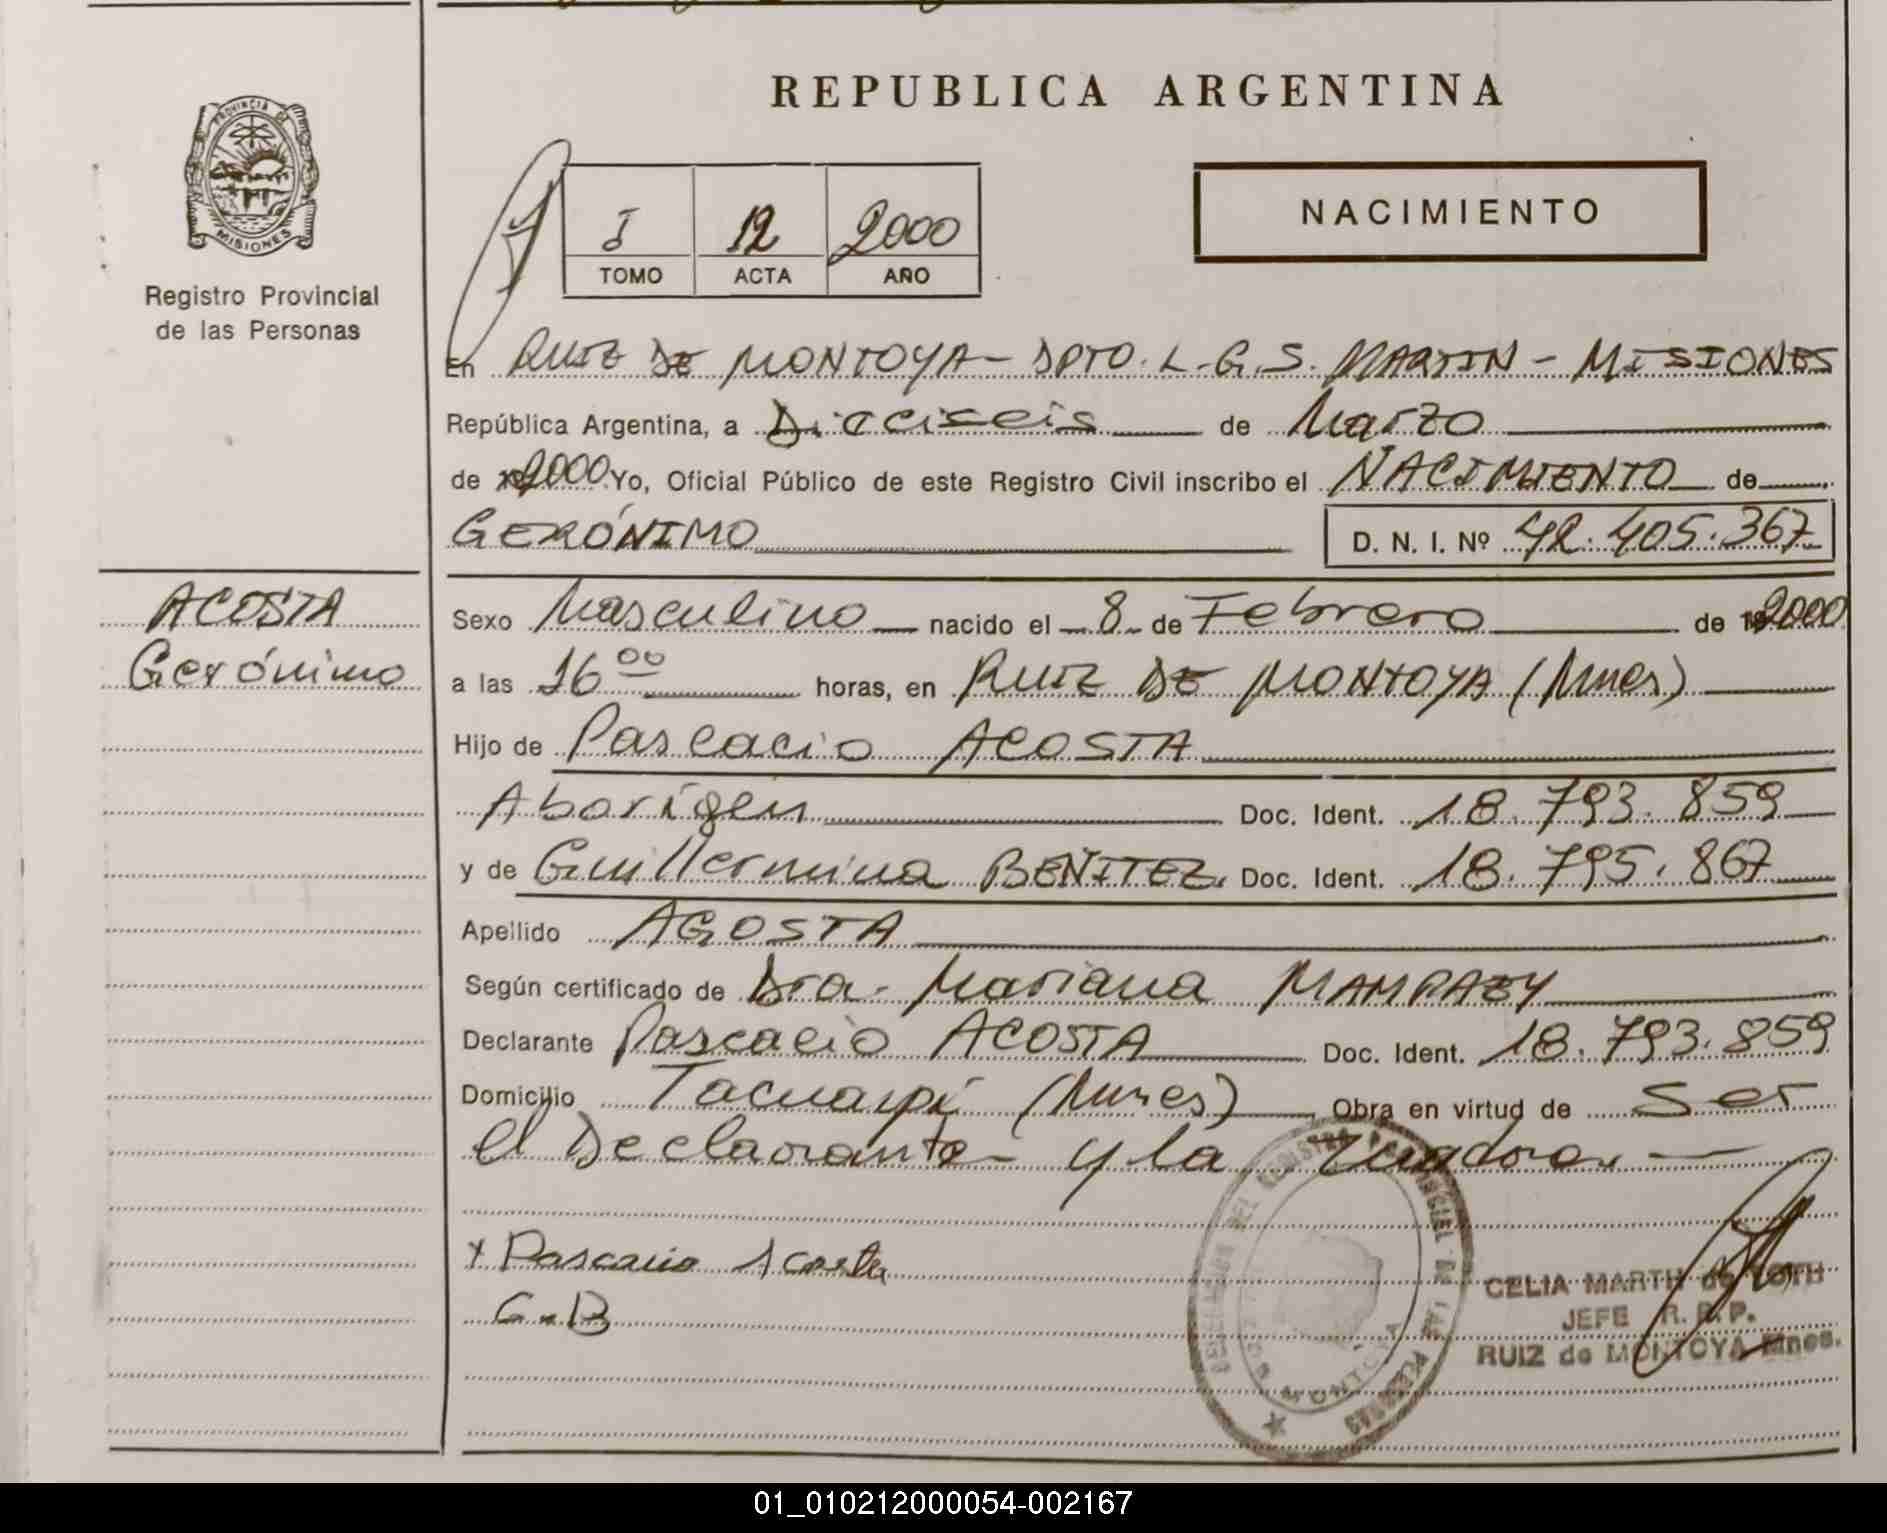 REPUBLICA ARGENTINA
PROVINCIA DE
MISIONES
Registro Provincial
de las Personas
I 12 2000
TOMO ACTA AÑO
NACIMIENTO
En RUIZ DE MONTOYA - DPTO. L. G. S. MARTIN - MISIONES
República Argentina, a Dieciseis de Marzo
de 2000 Yo, Oficial Público de este Registro Civil inscribo el NACIMIENTO de
GERÓNIMO D. N. I. Nº 42.405.367
ACOSTA
Gerónimo
Sexo Masculino nacido el 8 de Febrero de 2000
a las 16 00 horas, en RUIZ DE MONTOYA (Mnes)
Hijo de Pascacio ACOSTA
Aborígen Doc. Ident. 18.793.859
y de Guillermina BENITEZ. Doc. Ident. 18.795.867
Apellido ACOSTA
Según certificado de Dra. Mariana
Declarante Pascacio ACOSTA Doc. Ident. 18.793.859
Domicilio (Mnes) Obra en virtud de Ser
el Declarante y la
x Pascacio Acosta
G.B
DEL REGISTRO PROVINCIAL DE LAS PERSONAS
MONTOYA
CELIA MARTH de
JEFE R. P. P.
RUIZ de MONTOYA Mnes.
01_010212000054-002167